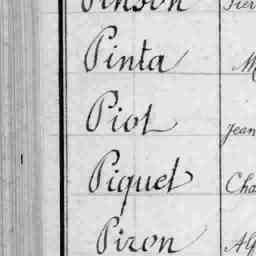 Pinson
Pinta M
Piot Jean
Piquet Cha
Piron Alp